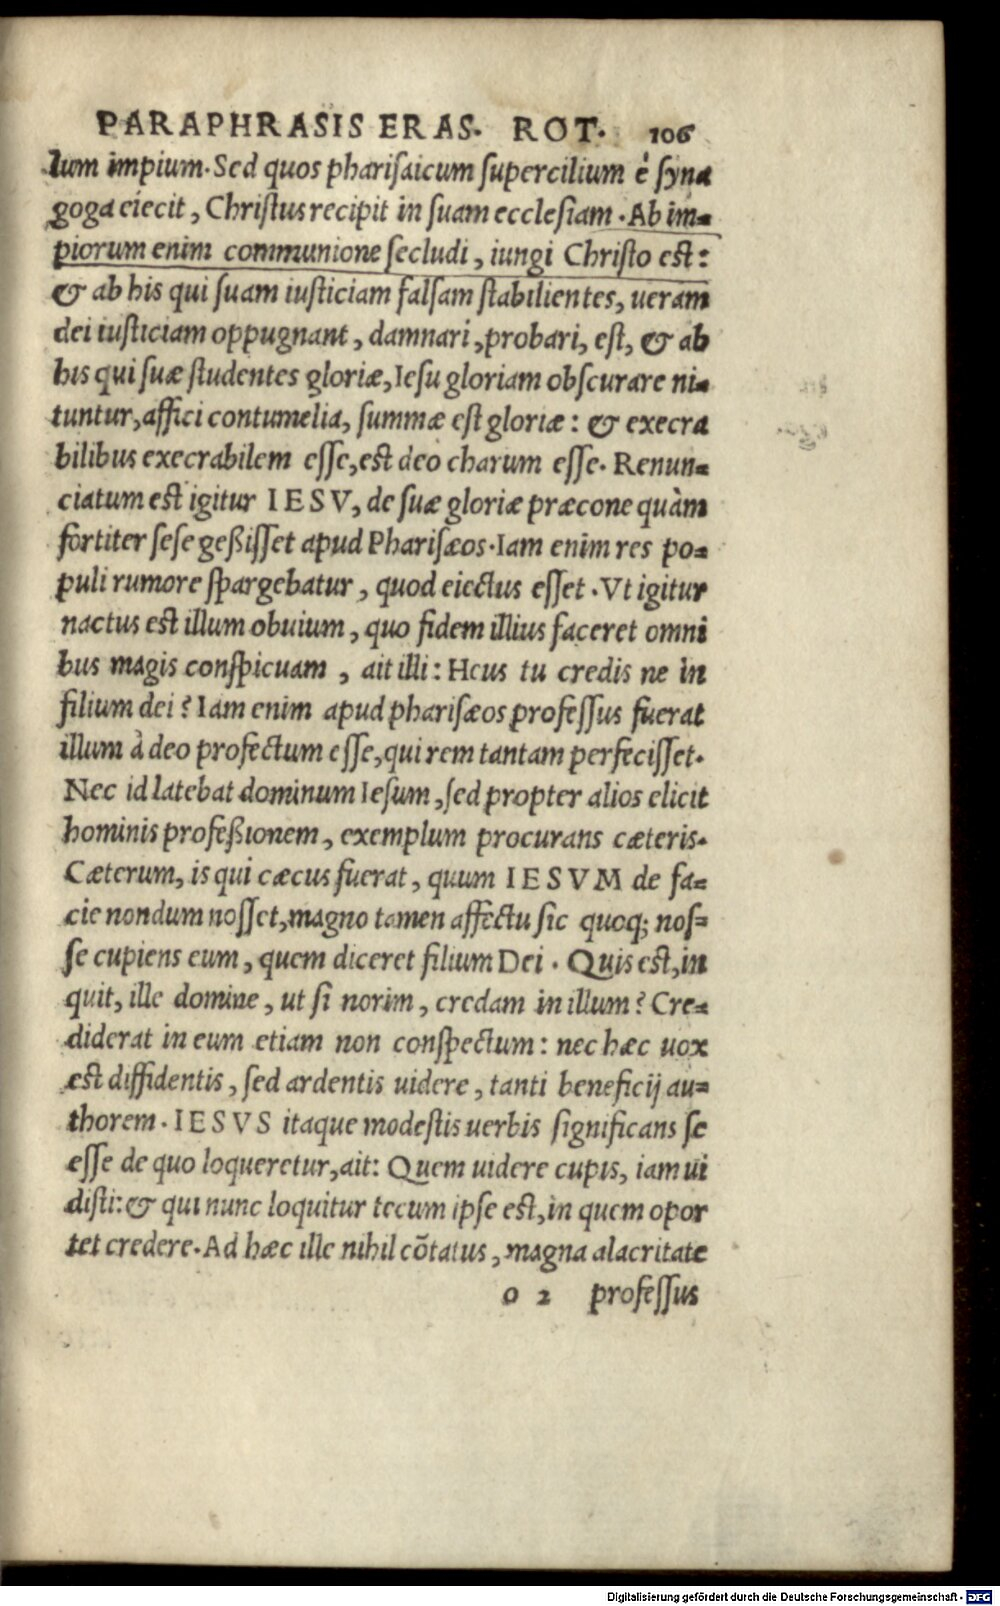 PARAPHRASIS ERAS. ROT. 106
lum impium. Sed quos pharisaicum supercilium è syna
goga eiecit, Christus recipit in suam ecclesiam. Ab im=
piorum enim communione secludi, iungi Christo est:
& ab his qui suam iusticiam falsam stabilientes, ueram
dei iusticiam oppugnant, damnari, probari, est, & ab
his qui suæ studentes gloriæ, Iesu gloriam obscurare ni=
tuntur, affici contumelia, summæ est gloriæ: & execra
bilibus execrabilem esse, est deo charum esse. Renun=
ciatum est igitur IESV, de suæ gloriæ præcone quàm
fortiter sese geßisset apud Pharisæos. Iam enim res po=
puli rumore spargebatur, quod eiectus esset. Vt igitur
nactus est illum obuium, quo fidem illius faceret omni
bus magis conspicuam, ait illi: Heus tu credis ne in
filium dei? Iam enim apud pharisæos professus fuerat
illum à deo profectum esse, qui rem tantam perfecisset.
Nec id latebat dominum Iesum, sed propter alios elicit
hominis profeßionem, exemplum procurans cæteris.
Cæterum, is qui cæcus fuerat, quum IESVM de fa=
cie nondum nosset, magno tamen affectu sic quoq; nos=
se cupiens eum, quem diceret filium Dei. Quis est, in
quit, ille domine, ut si norim, credam in illum? Cre=
diderat in eum etiam non conspectum: nec hæc uox
est diffidentis, sed ardentis uidere, tanti beneficij au=
thorem. IESVS itaque modestis uerbis significans se
esse de quo loqueretur, ait: Quem uidere cupis, iam ui
disti: & qui nunc loquitur tecum ipse est, in quem opor
tet credere. Ad hæc ille nihil cõtatus, magna alacritate
o 2 professus
Digitalisierung gefördert durch die Deutsche Forschungsgemeinschaft - DFG